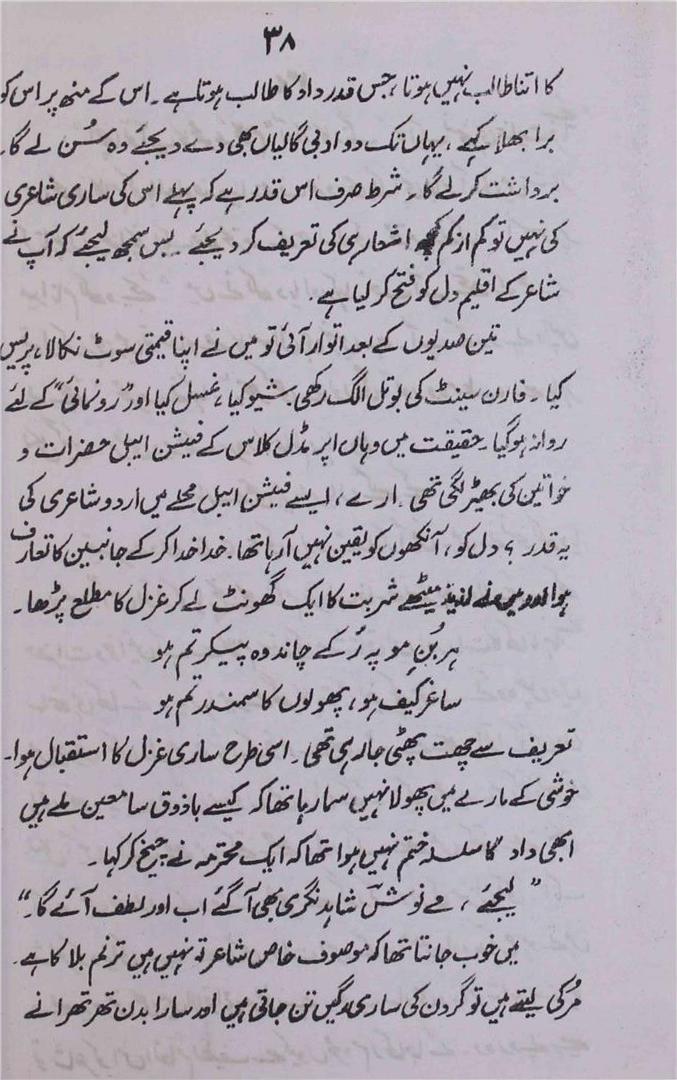 ۳۸
کا اتنا طالب نہیں ہوتا، جس قدر داد کا طالب ہوتا ہے۔ اس کے منھ پر اس کو
برا بھلا کہیے، یہاں تک دو ادبی گالیاں بھی دے دیجئے وہ سُن لے گا۔
برداشت کرلے گا۔ شرط صرف اس قدر ہے کہ پہلے اس کی ساری شاعری
کی نہیں تو کم از کم کچھ اشعار ہی کی تعریف کر دیجئے۔ بس سمجھ لیجئے کہ آپ نے
شاعر کے اقلیم دل کو فتح کر لیا ہے۔
تین صدیوں کے بعد اتوار آئی تو میں نے اپنا قیمتی سوٹ نکالا، پریس
کیا۔ فارن سینٹ کی بوتل الگ رکھی۔ شیو کیا، غسل کیا اور ”رونمائی“ کے لئے
روانہ ہوگیا۔ حقیقت میں وہاں اپر مڈل کلاس کے فیشن ایبل حضرات و
خواتین کی بھیڑ لگی تھی۔ ارے، ایسے فیشن ایبل محلے میں اردو شاعری کی
یہ قدر؟ دل کو، آنکھوں کو یقین نہیں آرہا تھا۔ خدا خدا کر کے جانبین کا تعارف
ہوا اور میں نے لذیذ میٹھے شربت کا ایک گھونٹ لے کر غزل کا مطلع پڑھا۔
ہر بُنِ مو پہ رُکے چاند وہ پیکر تم ہو
ساغرِ کیف ہو، پھولوں کا سمندر تم ہو
تعریف سے چھت پھٹی جارہی تھی۔ اسی طرح ساری غزل کا استقبال ہوا۔
خوشی کے مارے میں پھولا نہیں سما رہا تھا کہ کیسے باذوق سامعین ملے ہیں
ابھی داد کا سلسلہ ختم نہیں ہوا تھا کہ ایک محترمہ نے چیخ کر کہا۔
”لیجئے، مے نوشؔ شاہد نگری بھی آگئے اب اور لطف آئے گا۔“
میں خوب جانتا تھا کہ موصوف خاص شاعر تو نہیں ہیں ترنم بلا کا ہے۔
مُرکی لیتے ہیں تو گردن کی ساری رگیں تن جاتی ہیں اور سارا بدن تھرتھرانے